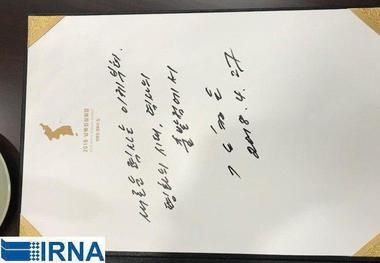 2018 남북정상회담
새로운 력사는 이제부터.
평화의 시대, 력사의
출발점에서
김정은
2018. 4. 27
IRNA